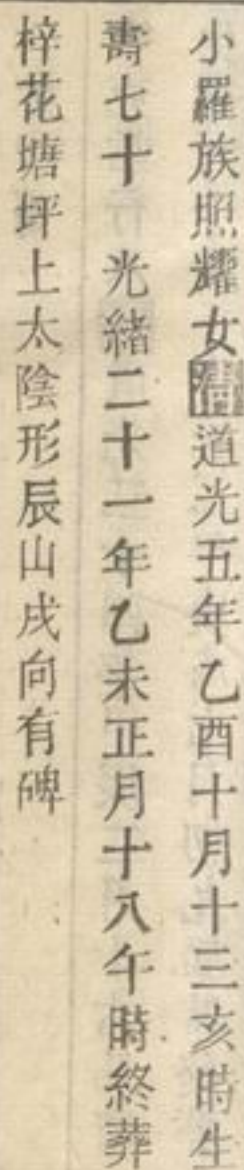 小羅族照耀女道光五年乙酉十月十三亥時生
壽七十光緒二十一年乙未正月十八午時終葬
梓花塘坪上太陰形辰山戌向有碑